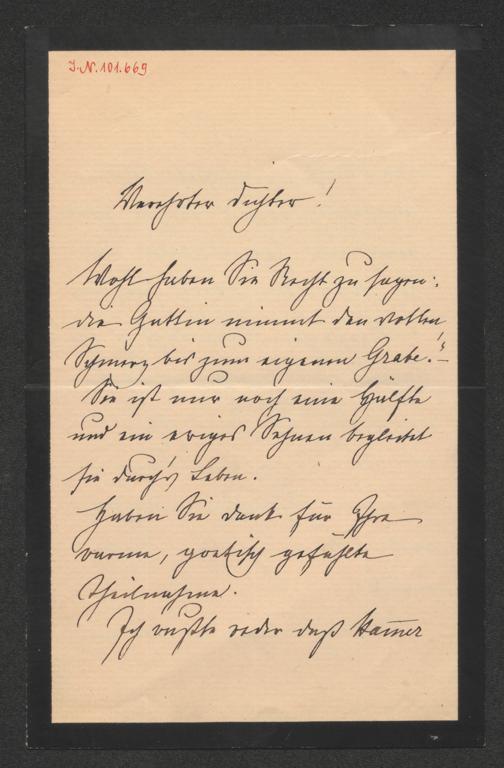 I.N. 101.669
Verehrter Dichter!
Wohl haben Sie Recht zu sagen:
die Gattin nimmt den vollen
Schmerz bis zum eigenen Grabe!"–
Sie ist nur noch eine Hälfte
und ein ewiges Sehnen begleitet
sie durch's Leben.
Haben Sie Dank für Ihre
warme, poetisch gefühlte
Theilnahme.
Ich wußte daß